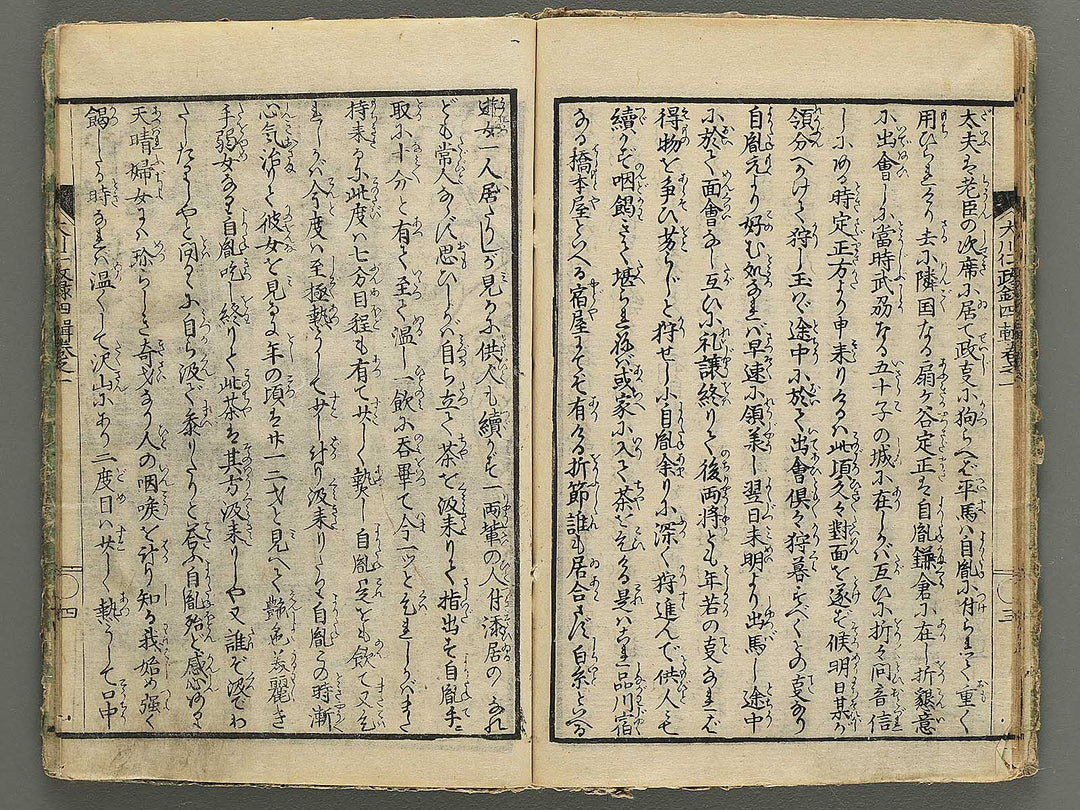 太夫は老臣の次席に居て政事に拘らへば平馬は自胤に付られて重く
用ひられけり去に隣国なる扇ヶ谷定正は自胤鎌倉に在し折懇意
に出會しに當時武劦なる五十子の城に在しかば互ひに折々同音信
しにある時定正方より申来りけるは此頃久々對面を遂ず候明日某が
領分へかけて狩し玉はゞ途中に於て出會倶々狩暮すべくとの事なり
自胤元より好む処なれば早速に領承し翌日未明より出馬し途中
に於て面會なし互ひに礼譲終りて後両將とも年若の事なれば
得物を争ひ芳らじと狩せしに自胤余りに深く狩進んで供人にも
續かず咽餲きて堪られねば或家に入て茶を乞ける是はこれ品川宿
なる橋本屋といへる宿屋にてぞ有ける折節誰も居合さず白糸といへる
婦女一人居たりしが見るに供人も續かず一両輩の人付添居のみなれ
ども常人ならず思ひしかば自ら立て茶を汲来りて指出す自胤手に
取に十分と有て至て温し一飲に呑畢て今一ッと乞れしかばまた
持来るに此度は七分目程も有て少しく熱し自胤是をも飲て又乞
れしかば今度は至極熱うして少し計り汲来りたる自胤この時漸
心気治りて彼女を見るに年の頃は廿一二才と見へて艶色美麗き
手弱女なり自胤吃し終りて此茶は其方汲来りしや又誰ぞ汲でわ
たしたるやと問るゝに自ら汲で参りたりと答ふ自胤殆ど感心ありて
天晴婦女には珍らしき奇才なり人の咽喉を計り知る我始め強く
餲したる時なれば温くして沢山にあり二度目は少しく熱うして口中
大川仁政録四輯巻之一
三
四